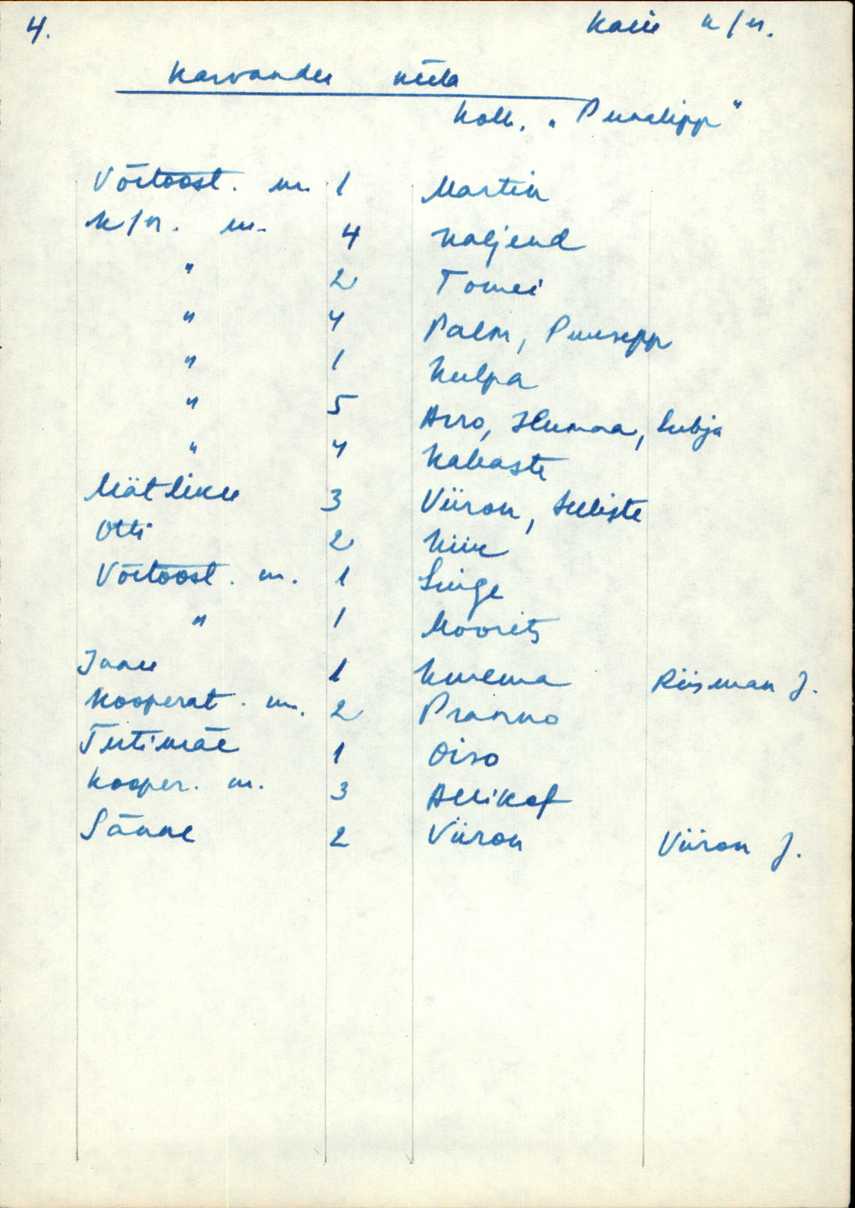 4.
k/n.
Karvandu küla
Kolh. "Punalipp"
Võitööst. m. 1 Martin
k/n. m. 4 Kaljend
" 2 Tomei
" 4 Palm, Puusepp
" 1 Kulpa
" 5 Arro, Humaa, Lubja
" 4 Kabaste
Mätliku 3 Viiron, Seeliste
Otti 2 Kiir
Võitööst. m. 1 Singe
" 1 Moorits
Jaani 1 Kurema Riisman J.
Kooperat. m. 2 Pranno
Tiitimäe 1 Oiso
Kooper. m. 3 Allikof
Sänne 2 Viiron Viiron J.